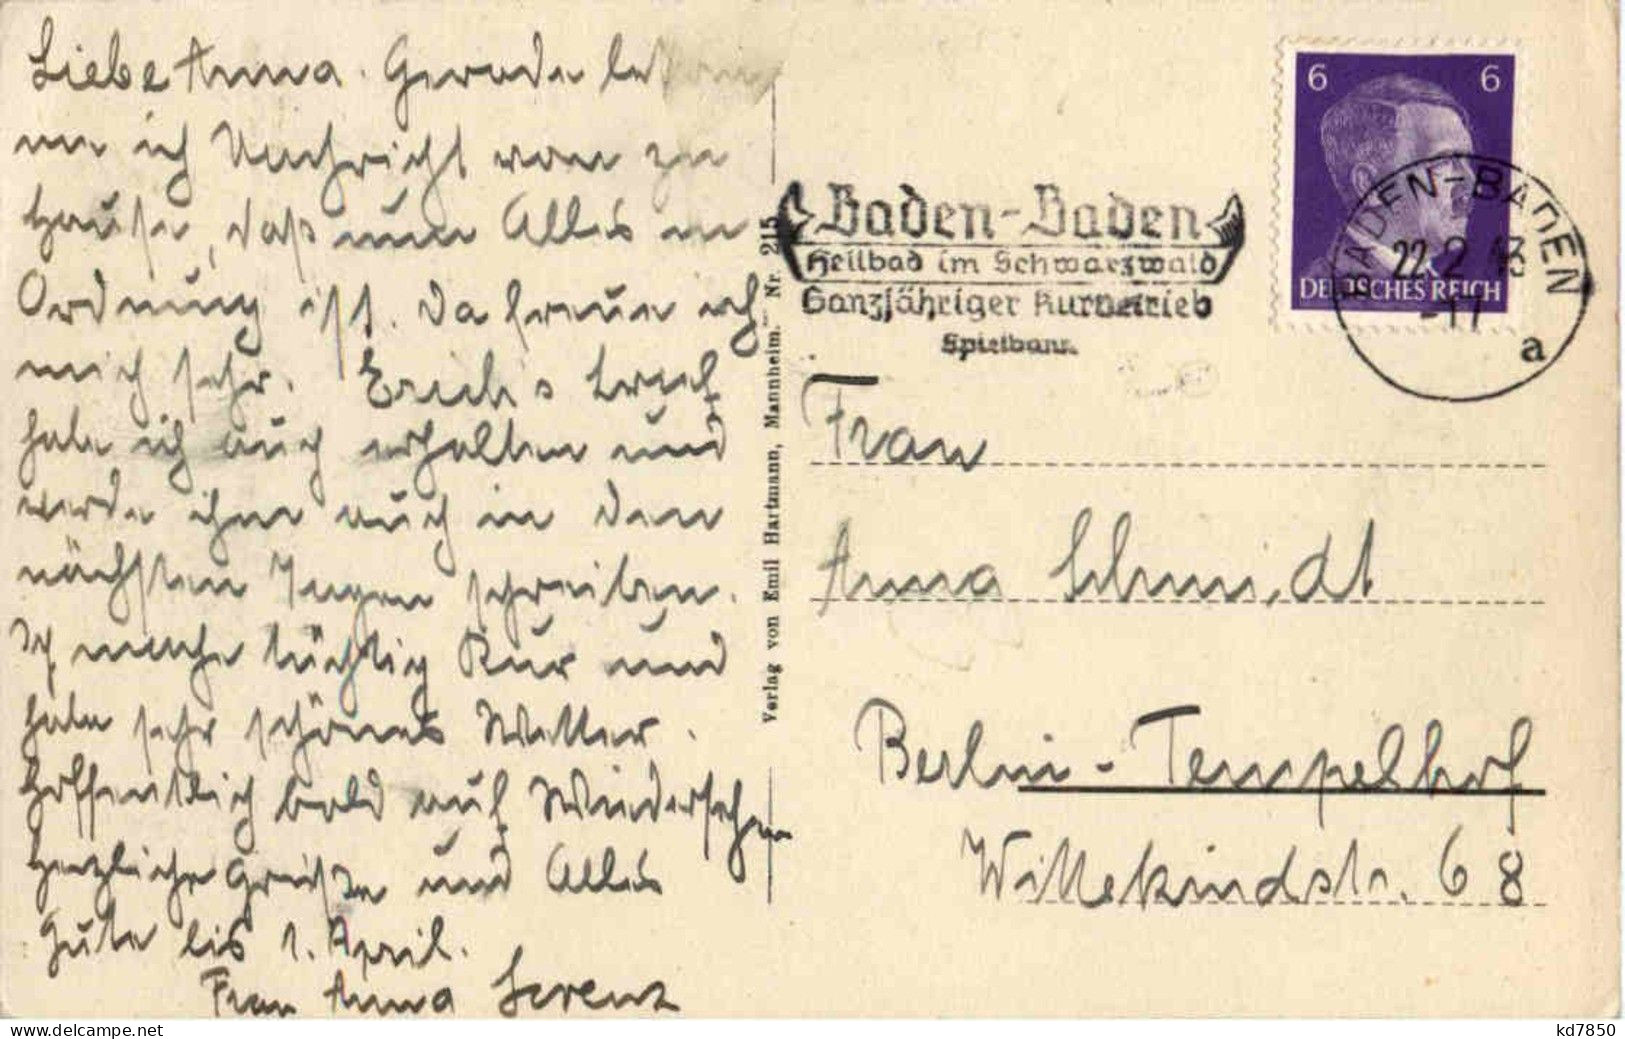 Liebe Anna. Gerade bekom
me ich Nachricht von zu
Hause, daß nun Alles in
Ordnung ist. Da freue ich
mich sehr. Erich's Brief
habe ich auch erhalten und
werde ihm auch in den
nächsten Tagen schreiben.
Ich mache tüchtig Kur und
habe sehr schönes Wetter.
Hoffentlich bald auf Wiedersehen
Herzliche Grüße und Alles
Gute bis 1. April.
Frau Anna Lorenz
Verlag von Emil Hartmann, Mannheim. Nr. 215
Baden-Baden
Heilbad im Schwarzwald
Ganzjähriger Kurbetrieb
Spielbank
6 6
DEUTSCHES REICH
BADEN-BADEN
22.2.43
-17
a
Frau
Anna Schmidt
Berlin-Tempelhof
Wittekindstr. 68
kd7850